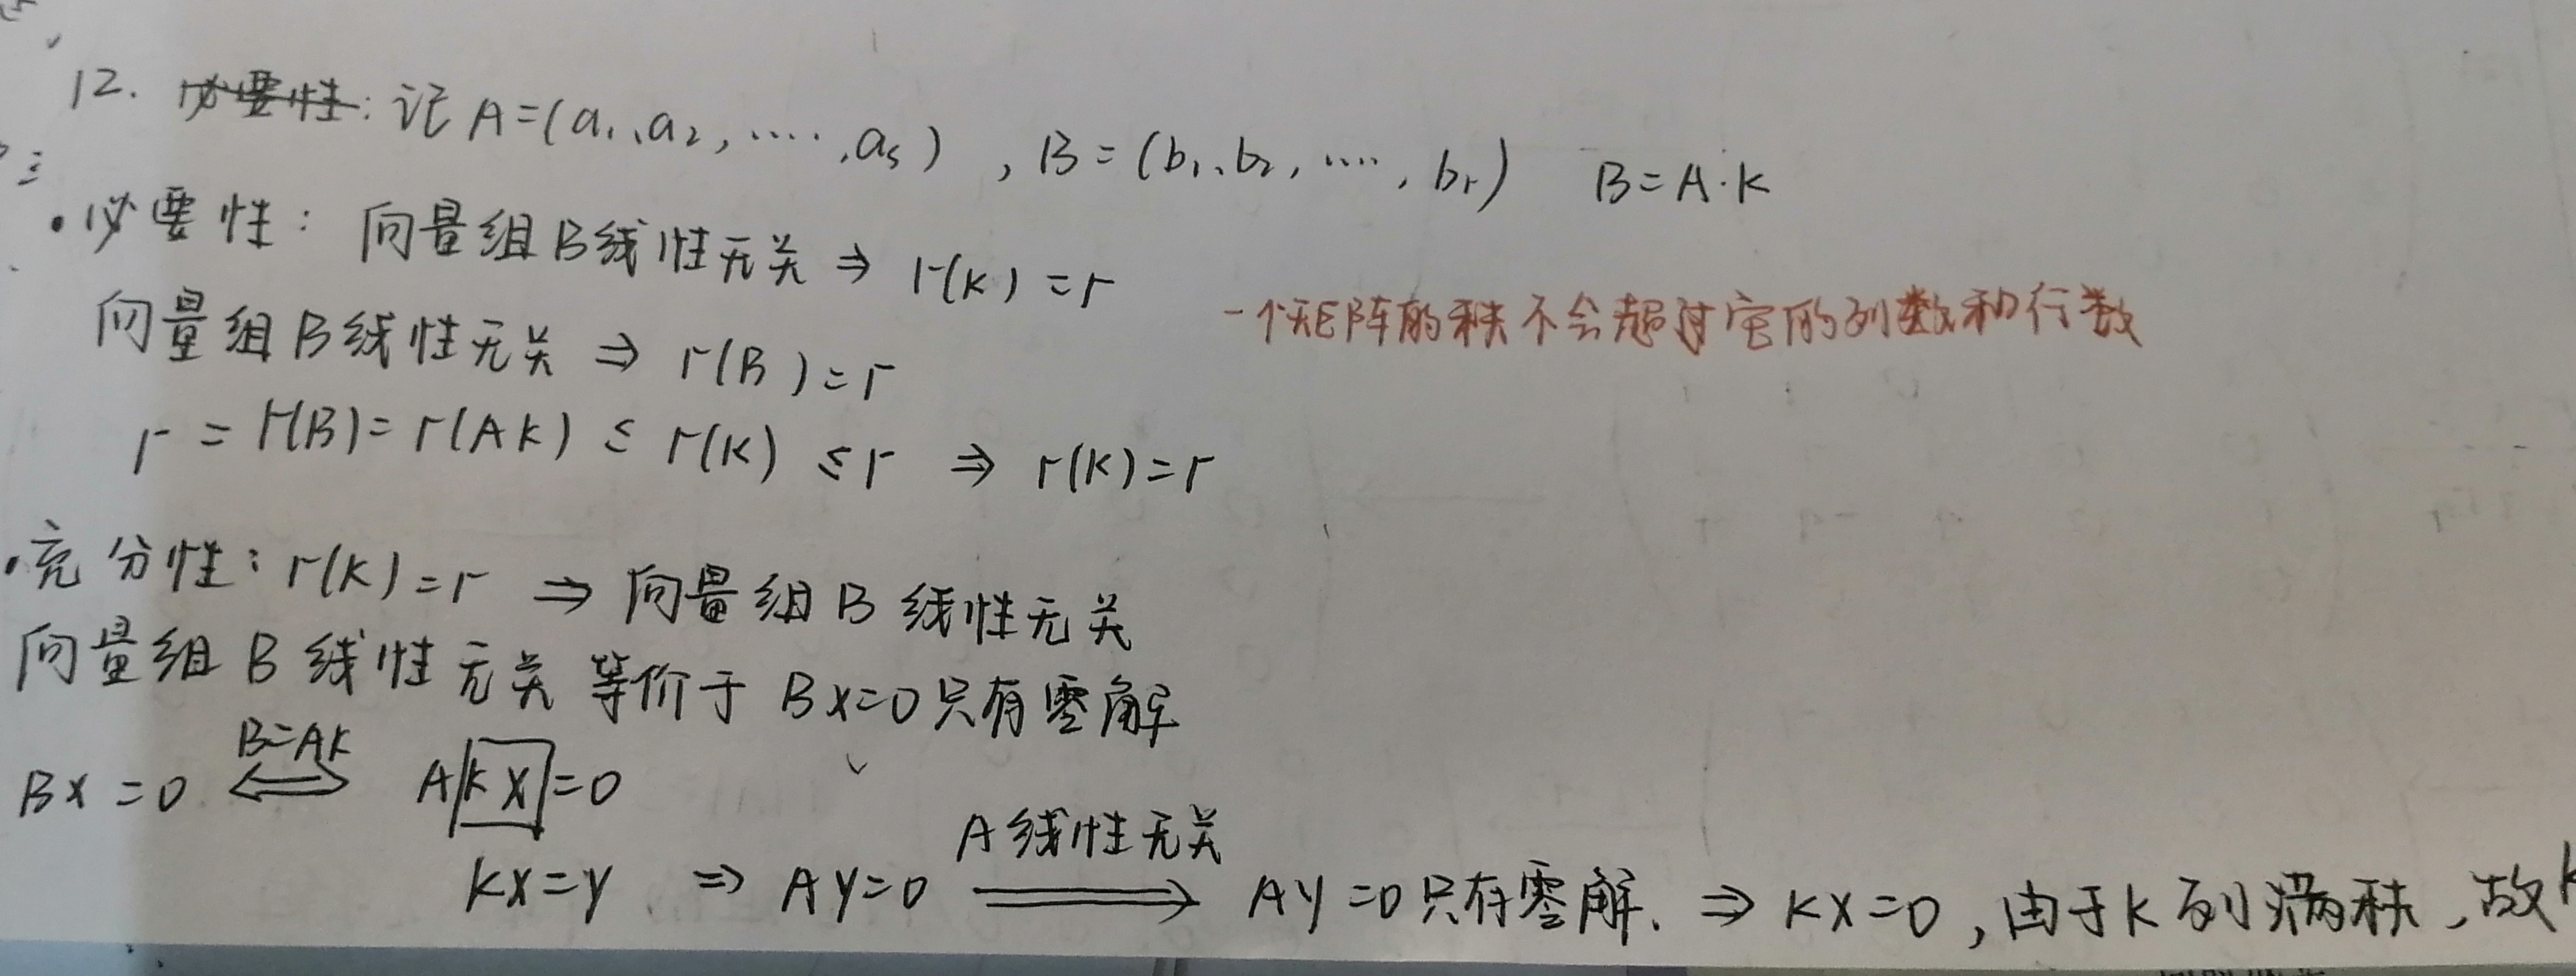 12. 必要性: 记 A=(a₁、a₂, ……,aₛ) , B=(b₁、b₂, ……, bᵣ)  B=A·K
·必要性: 向量组B线性无关 ⇒ r(K)=r
一个矩阵的秩不会超过它的列数和行数
向量组B线性无关 ⇒ r(B)=r
r = r(B)= r(AK) ≤ r(K) ≤r ⇒ r(K)=r
·充分性: r(K)=r ⇒ 向量组B线性无关
向量组B线性无关等价于 BX=0只有零解
BX=0 ⟺ A KX =0
B=AK
KX=y ⇒ AY=0 ⟹ AY=0只有零解. ⇒ KX=0, 由于K列满秩, 故
A线性无关